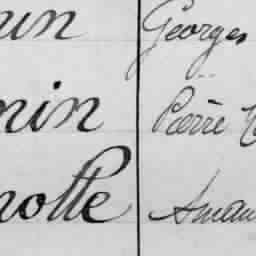 Georges
nin Pierre
notte Aman